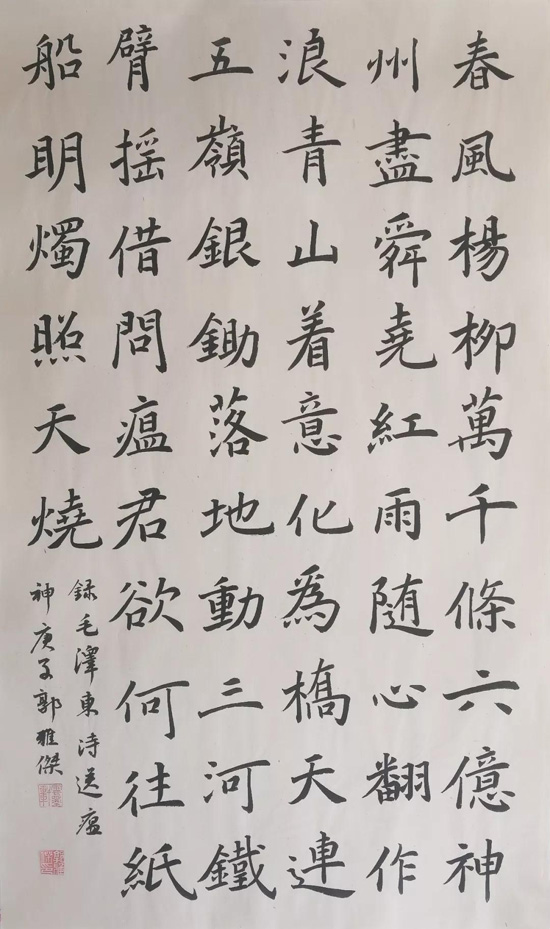 春風楊柳萬千條六億神
州盡舜堯紅雨随心翻作
浪青山着意化為橋天連
五嶺銀鋤落地動三河鐵
臂摇借問瘟君欲何往紙
船明燭照天燒
録毛澤東诗送瘟
神庚子郭雅傑